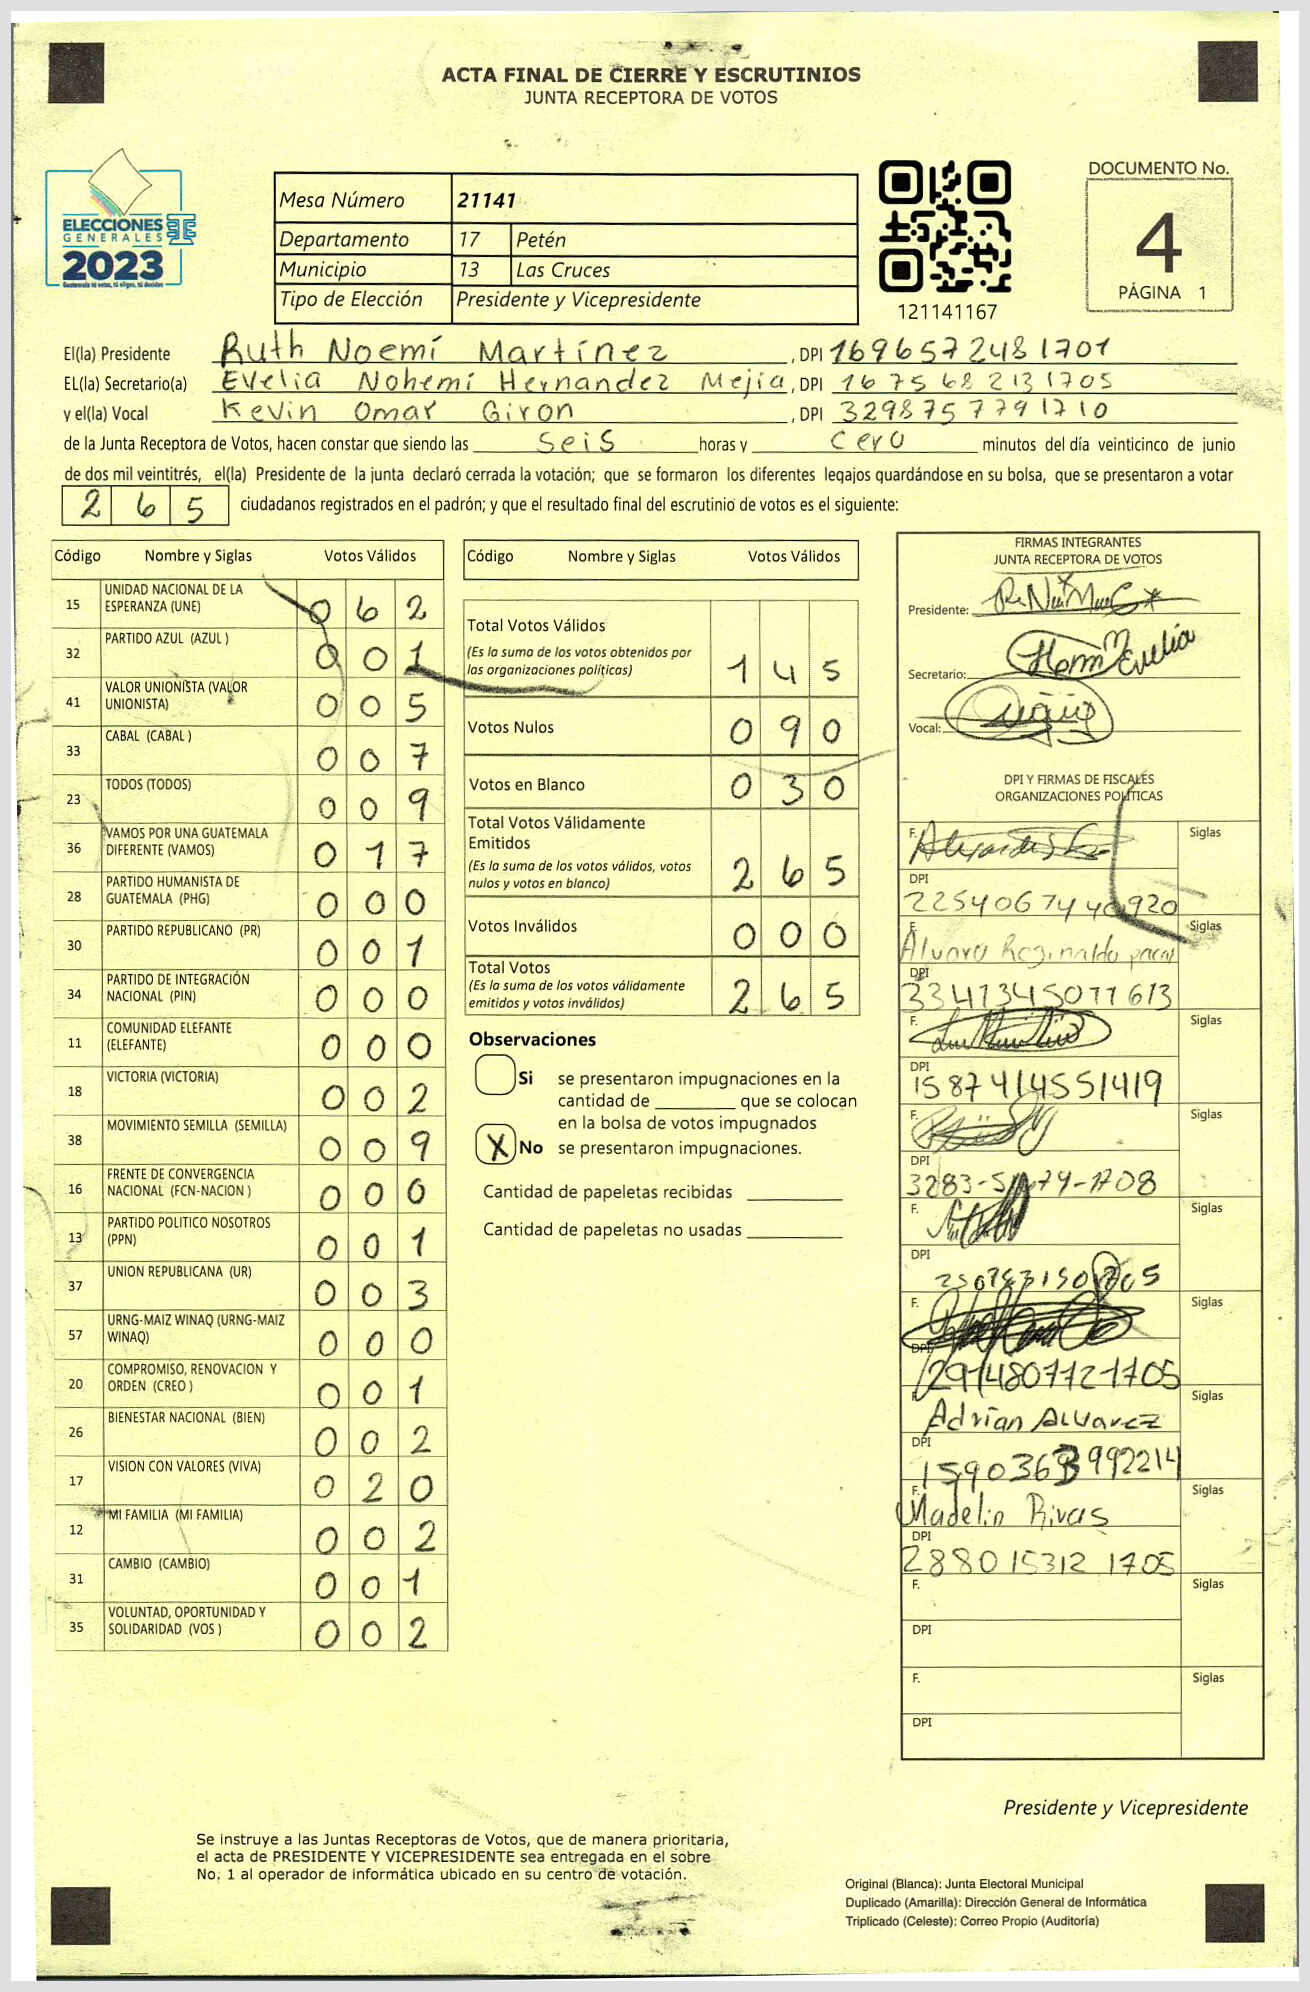 ACTA FINAL DE CIERRE Y ESCRUTINIOS
JUNTA RECEPTORA DE VOTOS
ELECCIONES
GENERALES
2023
Guatemala tú votas, tú eliges, tú decides
Mesa Número 21141
Departamento 17 Petén
Municipio 13 Las Cruces
Tipo de Elección Presidente y Vicepresidente
121141167
DOCUMENTO No.
4
PÁGINA 1
El(la) Presidente Ruth Noemí Martínez, DPI 1696572481701
EL(la) Secretario(a) Evelia Nohemí Hernandez Mejía, DPI 1675682131705
y el(la) Vocal Kevin Omar Giron, DPI 3298757791710
de la Junta Receptora de Votos, hacen constar que siendo las seis horas y cero minutos del día veinticinco de junio
de dos mil veintitrés, el(la) Presidente de la junta declaró cerrada la votación; que se formaron los diferentes legajos guardándose en su bolsa, que se presentaron a votar
2 6 5 ciudadanos registrados en el padrón; y que el resultado final del escrutinio de votos es el siguiente:
Código Nombre y Siglas Votos Válidos
15 UNIDAD NACIONAL DE LA ESPERANZA (UNE) 0 6 2
32 PARTIDO AZUL (AZUL ) 0 0 1
41 VALOR UNIONISTA (VALOR UNIONISTA) 0 0 5
33 CABAL (CABAL ) 0 0 7
23 TODOS (TODOS) 0 0 9
36 VAMOS POR UNA GUATEMALA DIFERENTE (VAMOS) 0 1 7
28 PARTIDO HUMANISTA DE GUATEMALA (PHG) 0 0 0
30 PARTIDO REPUBLICANO (PR) 0 0 1
34 PARTIDO DE INTEGRACIÓN NACIONAL (PIN) 0 0 0
11 COMUNIDAD ELEFANTE (ELEFANTE) 0 0 0
18 VICTORIA (VICTORIA) 0 0 2
38 MOVIMIENTO SEMILLA (SEMILLA) 0 0 9
16 FRENTE DE CONVERGENCIA NACIONAL (FCN-NACION ) 0 0 0
13 PARTIDO POLITICO NOSOTROS (PPN) 0 0 1
37 UNION REPUBLICANA (UR) 0 0 3
57 URNG-MAIZ WINAQ (URNG-MAIZ WINAQ) 0 0 0
20 COMPROMISO, RENOVACION Y ORDEN (CREO ) 0 0 1
26 BIENESTAR NACIONAL (BIEN) 0 0 2
17 VISION CON VALORES (VIVA) 0 2 0
12 MI FAMILIA (MI FAMILIA) 0 0 2
31 CAMBIO (CAMBIO) 0 0 1
35 VOLUNTAD, OPORTUNIDAD Y SOLIDARIDAD (VOS ) 0 0 2
Código Nombre y Siglas Votos Válidos
Total Votos Válidos
(Es la suma de los votos obtenidos por
las organizaciones políticas) 1 4 5
Votos Nulos 0 9 0
Votos en Blanco 0 3 0
Total Votos Válidamente
Emitidos
(Es la suma de los votos válidos, votos
nulos y votos en blanco) 2 6 5
Votos Inválidos 0 0 0
Total Votos
(Es la suma de los votos válidamente
emitidos y votos inválidos) 2 6 5
Observaciones
Si se presentaron impugnaciones en la
cantidad de ________ que se colocan
en la bolsa de votos impugnados
X No se presentaron impugnaciones.
Cantidad de papeletas recibidas
Cantidad de papeletas no usadas
FIRMAS INTEGRANTES
JUNTA RECEPTORA DE VOTOS
Presidente:
Secretario: Evelia
Vocal:
DPI Y FIRMAS DE FISCALES
ORGANIZACIONES POLÍTICAS
F. Siglas
DPI
F. Alvaro Reginaldo Siglas
DPI
3347345077613
F. Siglas
DPI
1587414551419
F. Siglas
DPI
F. Siglas
DPI
F. Siglas
DPI
F. Adrían Alvarez Siglas
DPI
F. Madelin Rivas Siglas
DPI
2880153121705
F. Siglas
DPI
F. Siglas
DPI
Presidente y Vicepresidente
Se instruye a las Juntas Receptoras de Votos, que de manera prioritaria,
el acta de PRESIDENTE Y VICEPRESIDENTE sea entregada en el sobre
No. 1 al operador de informática ubicado en su centro de votación.
Original (Blanca): Junta Electoral Municipal
Duplicado (Amarilla): Dirección General de Informática
Triplicado (Celeste): Correo Propio (Auditoría)